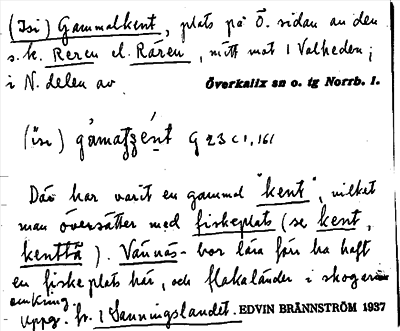 (Isi) Gammalkent, plats på Ö. sidan av den
s.k. Reren el. Rären, mitt mot 1 Valheden;
i N. delen av
Överkalix sn o. tg Norrb. l.
G 23 C 1, 161
Där har varit en gammal "kent", vilket
man översätter med fiskeplats (se kent,
kenttä). Vännäs-bor lära förr ha haft
en fiskeplats här, och flakaländer i skogen
omkring.
Uppg. fr. 1 Sanningslandet. EDVIN BRÄNNSTRÖM 1937